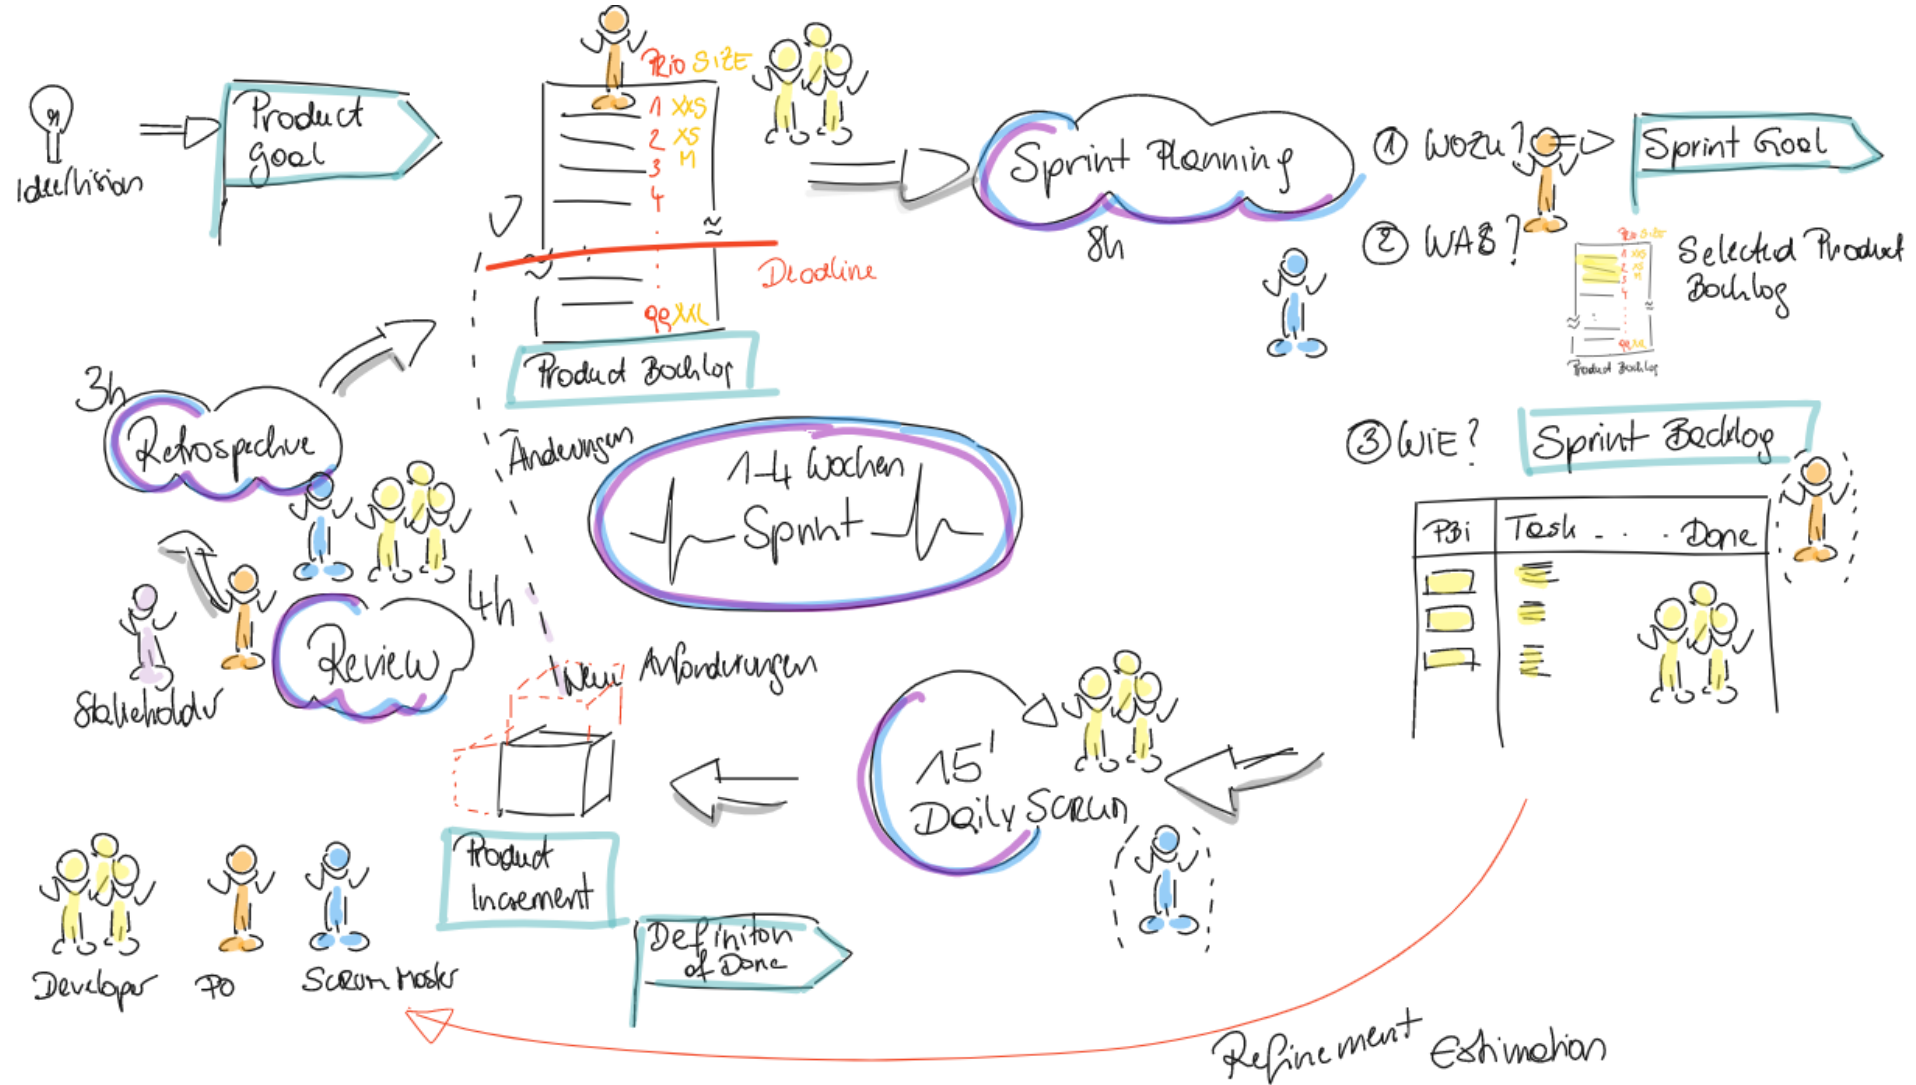 Idee/Vision
Product
Goal
PRIO SIZE
1 XXS
2 XS
3 M
4
99 XXL
Deadline
Product Backlog
Sprint Planning
8h
1 WOZU?
Sprint Goal
2 WAS?
PRIO SIZE
1 XXS
2 XS
3 M
4
99 XXL
Product Backlog
Selected Product
Backlog
3 WIE?
Sprint Backlog
PBi Task . . . Done
3h
Retrospective
Änderungen
1-4 Wochen
Sprint
4h
Review
Stakeholder
Neue Anforderungen
15'
Daily Scrum
Product
Increment
Definiton
of Done
Developer PO Scrum Master
Refinement Estimation